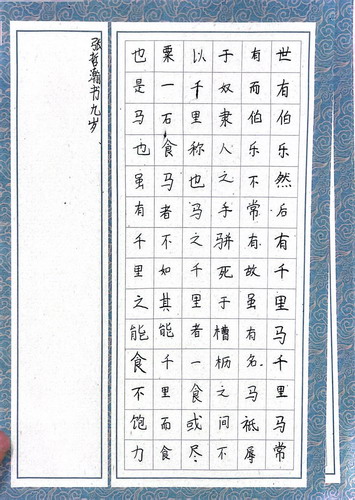 世有伯乐然后有千里马千里马常
有而伯乐不常有故虽有名马祗辱
于奴隶人之手骈死于槽枥之间不
以千里称也马之千里者一食或尽
粟一石食马者不如其能千里而食
也是马也虽有千里之能食不饱力
张哲瀚书九岁